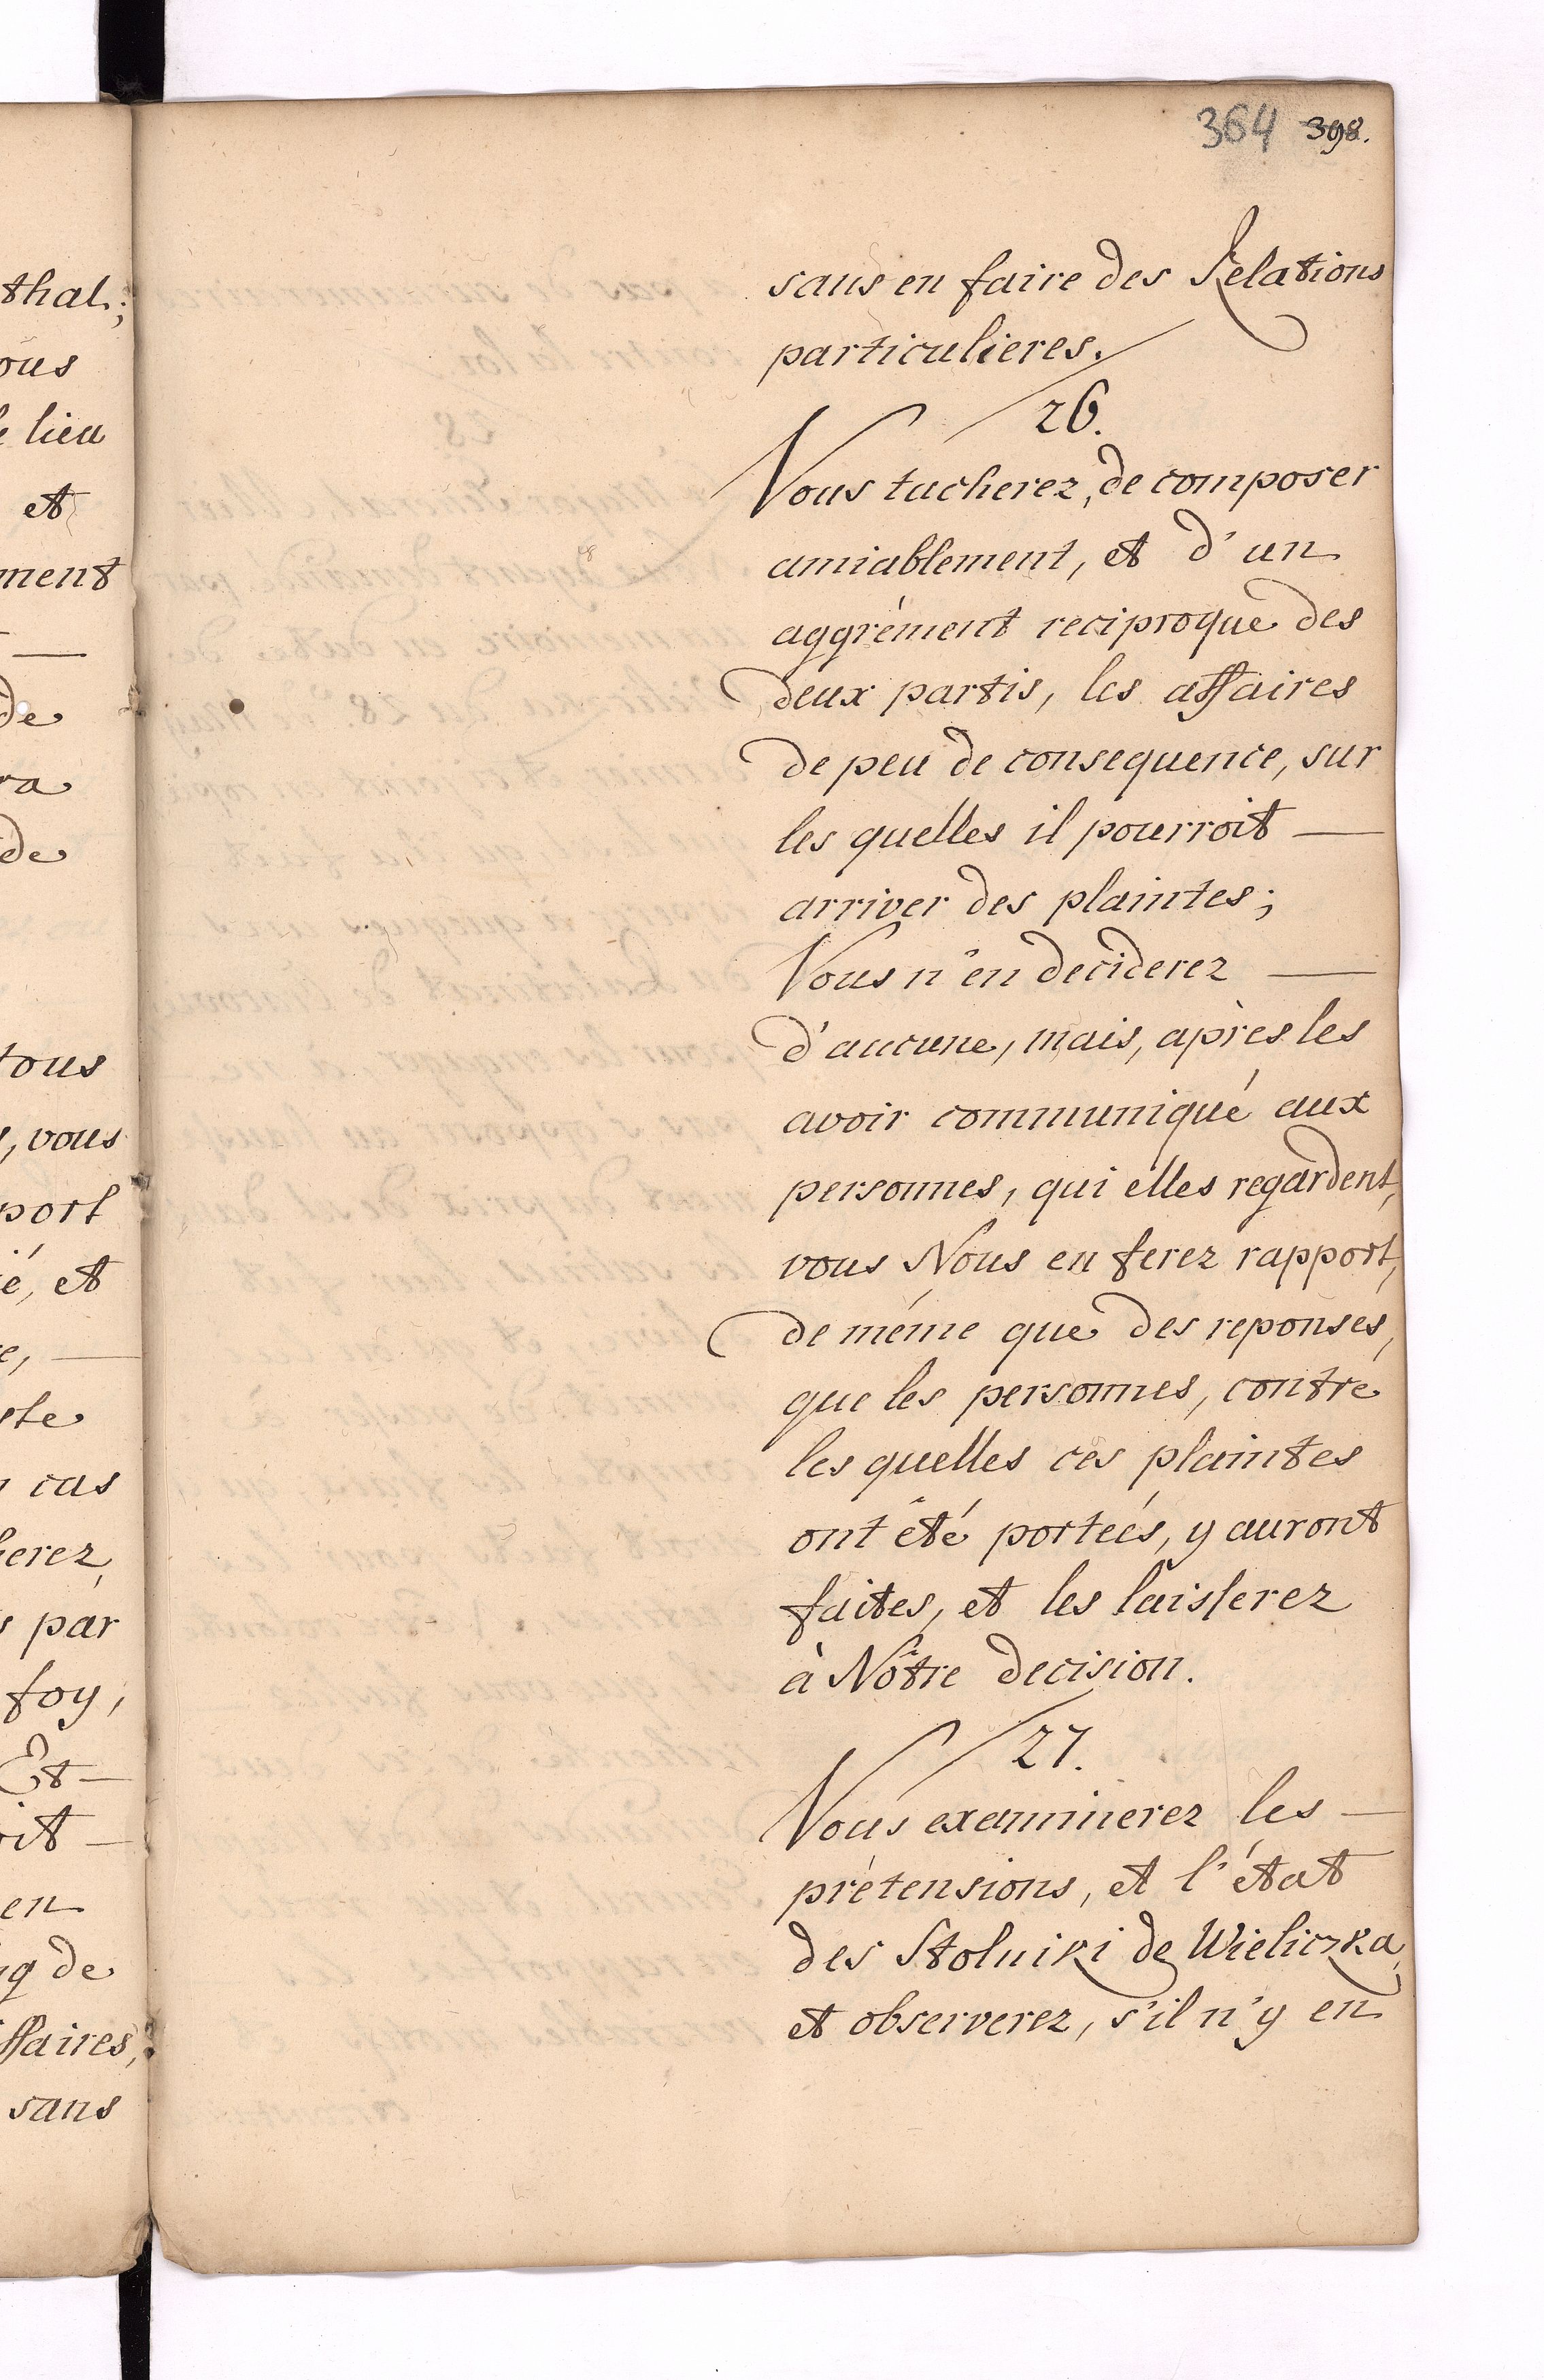 364 398.
thal;
ous
e lieu
et
ment
de
ra
de
tous
, vous
port
ié, et
e,
ste
n cas
herez,
s par
foy,
Et
oit
en
de
ffaires,
sans
sans en faire des Relations
particulieres.
26.
Vous tacherez, de composer
amiablement, et d'un
aggrément reciproque des
deux partis, les affaires
de peu de consequence, sur
les quelles il pourroit —
arriver des plaintes;
Vous n'en deciderez —
d'aucune, mais, après les
avoir communiqué aux
personnes, qui elles regardent,
vous Nous en ferez rapport,
de même que des reponses,
que les personnes, contre
les quelles ces plaintes
ont été porteés, y auront
faites, et les laisserez
à Nôtre decision.
27.
Vous examinerez les —
prétensions, et l'état
des Stolniki de Wieliczka,
et observerez, s'il n'y en